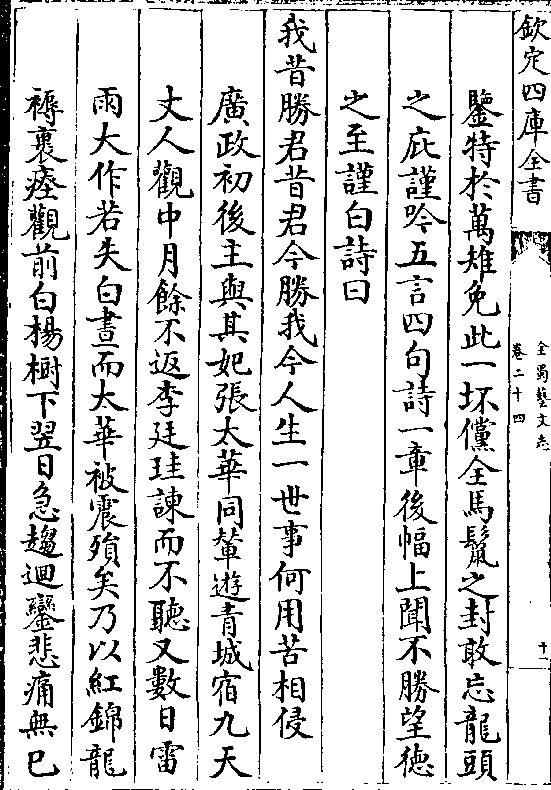 欽定四庫全書
全蜀藝文志
卷二十四
十一
鑒特於萬雉免此一坏儻全馬鬣之封敢忘龍頭
之庇謹吟五言四句詩一章後幅上聞不勝望徳
之至謹白詩曰
我昔勝君昔君今勝我今人生一世事何用苦相侵
廣政初後主與其妃張太華同輦遊青城宿九天
丈人觀中月餘不返李廷珪諫而不聽又數日雷
雨大作若失白晝而太華被震殞矣乃以紅錦龍
褥裹瘞觀前白楊樹下翌日急趨迴鑾悲痛無已